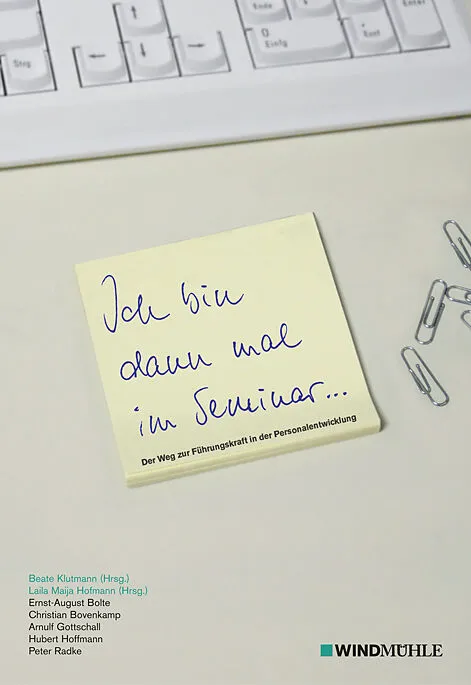 Strg
Ende
0
Einfg
Entf
Enter
Ich bin
dann mal
im Seminar...
Der Weg zur Führungskraft in der Personalentwicklung
Beate Klutmann (Hrsg.)
Laila Maija Hofmann (Hrsg.)
Ernst-August Bolte
Christian Bovenkamp
Arnulf Gottschall
Hubert Hoffmann
Peter Radke
WINDMÜHLE